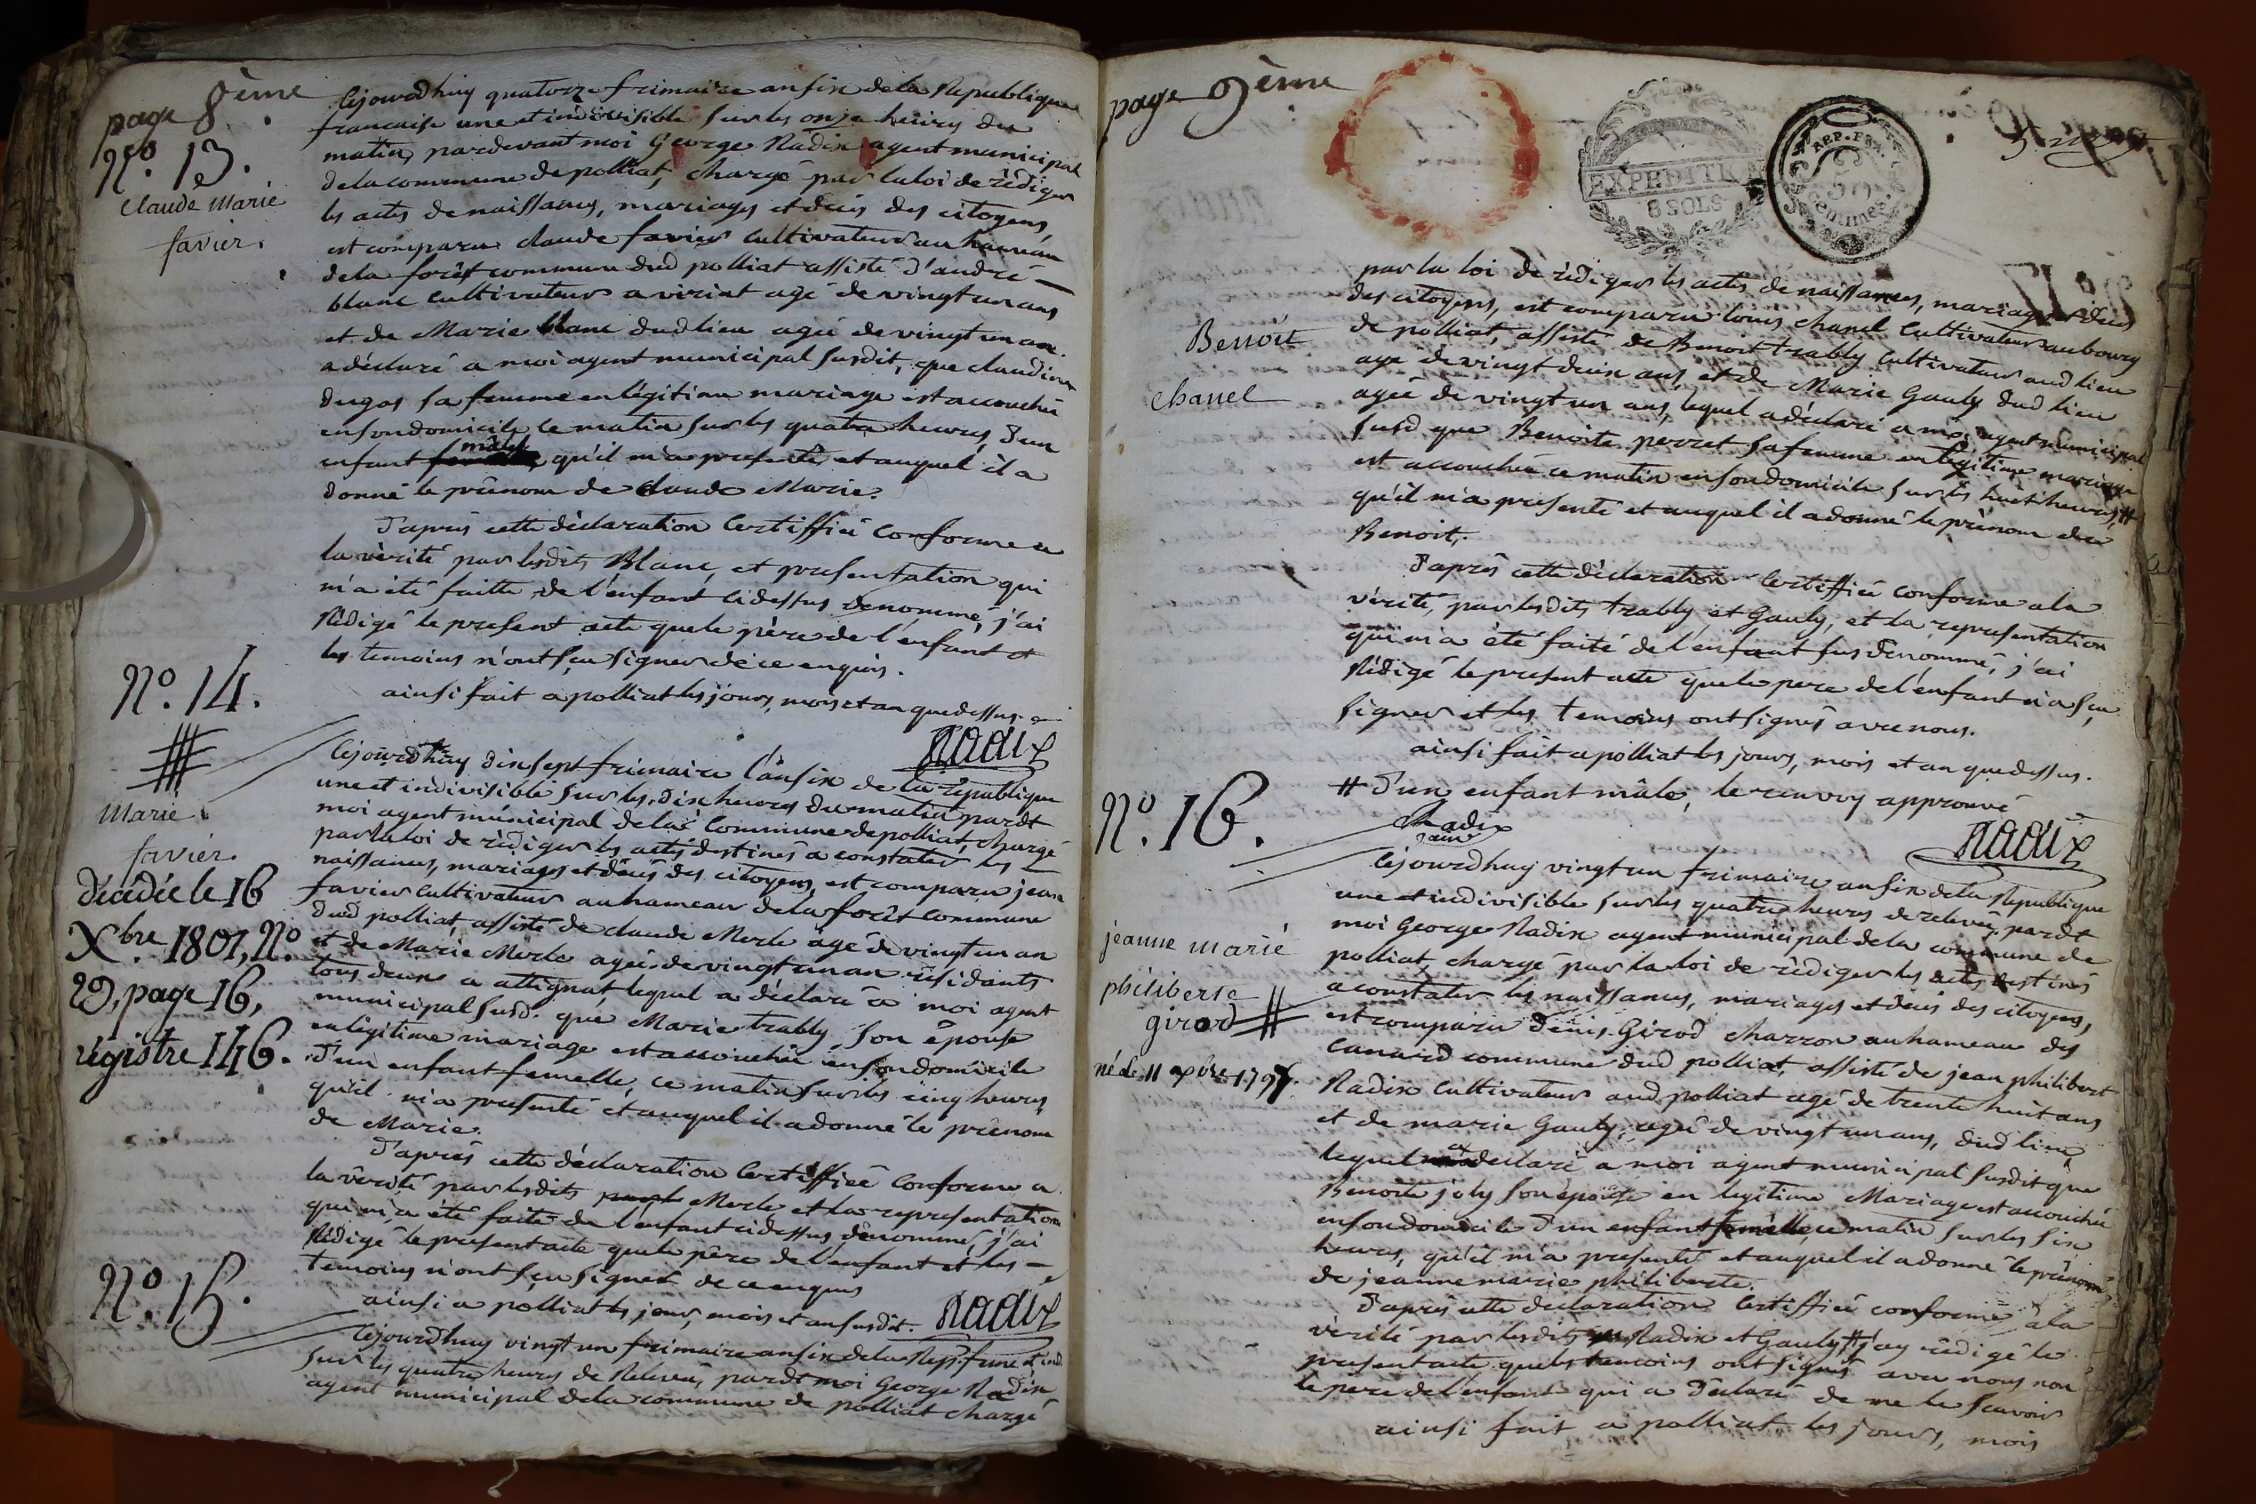 page 8ème
N.º 13.
Claude Marie
favier.
Cejourdhuy quatorze frimaire an six de la Republique
francaise une et indivisible sur les onze heures du
matin, pardevant moi George Radix agent municipal
de la commune de polliat, chargé par la loi de rédiger
les actes de naissances, mariages et décès des citoyens,
est comparu claude favier Cultivateur au hameau
de la forêt commune dud polliat assisté d'andré
blanc Cultivateur a viriat agé de vingt un ans
et de Marie blanc dud lieu agée de vingt un an.
a déclaré a moi agent municipal susdit, que claudine
dugas sa femme en légitime mariage est accouchée
en son domicile ce matin sur les quatre heures, d'un
enfant mâle, qu'il m'a presenté, et auquel il a
donné le prénom de Claude Marie.
D'après cette déclaration Certiffiée Conforme a
la vérité par lesdits Blanc, et presentation qui
m'a été faitte de l'enfant cidessus denommé, j'ai
Rédigé le present acte que le père de l'enfant et
les temoins n'ont sçu signer de ce enquis.
ainsi fait a polliat les jours, mois et an que dessus.
Radix
N.º 14.
Marie
favier.
décédée le 16
Xbre 1801, N.º
29, page 16,
régistre 146.
Cejourdhuy dix sept frimaire l'an six de la république
une et indivisible sur les dix heures du matin pardt
moi agent municipal de la Commune de polliat, chargé
par la loi de rédiger les actes destinés a constater les
naissances, mariages et décès des citoyens, est comparu jean
favier cultivateur au hameau de la forêt commune
dud polliat, assisté de claude Merle agé de vingt un an
et de Marie Merle agée de vingt un an résidants
tous deux a attignat lequel a déclaré a moi agent
municipal susd. que Marie trably, son épouse
en légitime mariage est accouchée en son domicile
d'un enfant femelle, ce matin sur les cinq heures,
qu'il m'a presenté et auquel il a donné le prénom
de Marie.
D'après cette déclaration Certiffiée Conforme a
la vérité par lesdits Merle et la representation
qui m'a été faite de l'enfant cidessus denommé, j'ai
Rédigé le present acte que le père de l'enfant et les
temoins n'ont sçu signer de ce enquis
ainsi a polliat les jour, mois et an susdit.
Radix
N.º 15.
Cejourdhuy vingt un frimaire an six de la Rep. f. une et ind.
sur les quatre heures de Relevée, pardt moi George Radix
agent municipal de la commune de polliat chargé
page 9ème
EXPEDITION
8 SOLS
REP. FRA.
Benoit
Chanel
par la loi de rédiger les actes de naissances, mariages et décès
des citoyens, est comparu louis chanel Cultivateur au bourg
de polliat, assisté de Benoit trably Cultivateur aud lieu
agé de vingt deux ans, et de Marie Gauly dud lieu
agée de vingt un ans, lequel a déclaré a moi agent municipal
susd. que Benoite perret sa femme en légitime mariage
est accouchée ce matin en son domicile sur les huit heures, #
qu'il m'a presenté et auquel il a donné le prénom de
Benoit.
D'après cette déclaration Certiffiée Conforme a la
vérité, par lesdits trably et Gauly, et la representation
qui m'a été faite de l'enfant sus denommé, j'ai
Rédigé le present acte que le pere de l'enfant n'a sçu
signer et les temoins ont signés avec nous.
ainsi fait a polliat les jours, mois et an que dessus.
# d'un enfant mâle, le renvoy approuvé
Radix
Radix
N.º 16.
jeanne marie
philiberte
girod #
né le 11 Xbre 1797.
Cejourdhuy vingt un frimaire an six de la Republique
une et indivisible sur les quatre heures de relevée, pardt
moi George Radix agent municipal de la commune de
polliat, chargé par la loi de rédiger les actes destinés
a constater les naissances, mariages et décès des citoyens,
est comparu Denis Girod charron au hameau des
Canard commune dud polliat, assisté de jean philibert
Radix Cultivateur aud polliat agé de trente huit ans
et de marie Gauly, agée de vingt un ans, dud lieu,
lequel a declaré a moi agent municipal susdit que
Benoite joly son épouse en legitime Mariage est accouchée
en son domicile d'un enfant femelle, ce matin sur les six
heures, qu'il m'a presenté et auquel il a donné le prénom
de jeanne marie philiberte.
D'après cette declaration Certiffiée conforme a la
vérité par lesdits Radix et Gauly # j'ay rédigé le
present acte que les temoins ont signés avec nous non
le pere de l'enfant qui a déclaré de ne le scavoir
ainsi fait a polliat les jours, mois